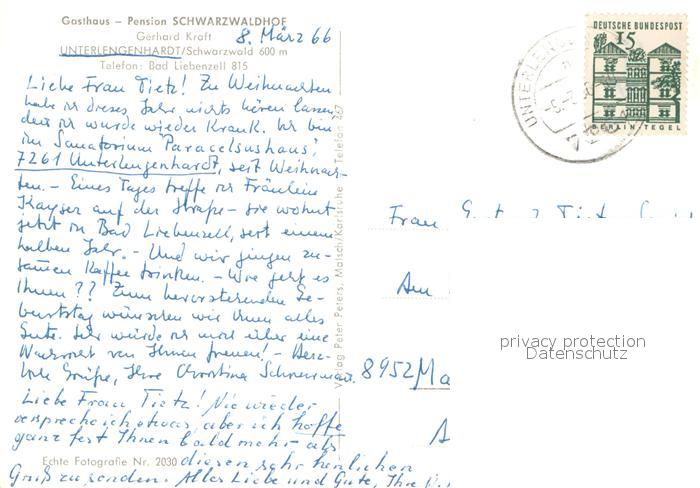 Gasthaus – Pension SCHWARZWALDHOF
Gerhard Kraft
8. März 66
UNTERLENGENHARDT/Schwarzwald 600 m
Telefon: Bad Liebenzell 815
Liebe Frau Tietz! Zu Weihnachten
habe ich dieses Jahr nichts hören lassen
denn ich wurde wieder krank. Ich bin
im Sanatorium Paracelsushaus,
7261 Unterlengenhardt, seit Weihnach-
ten. – Eines Tages treffe ich Fräulein
Kayser auf der Straße – sie wohnt
jetzt in Bad Liebenzell, seit einem
halben Jahr. – Und wir gingen zu-
sammen Kaffee trinken. – Wie geht es
Ihnen?? Zum bevorstehenden Ge-
burtstag wünschen wir Ihnen alles
Gute. Sehr würde ich mich über eine
Nachricht von Ihnen freuen! – Herz-
liche Grüße, Ihre Christina
Liebe Frau Tietz! Nie wieder
verspreche ich etwas, aber ich hoffe
ganz fest Ihnen bald mehr als
diesen sehr herzlichen
Gruß zu senden. Alles Liebe und Gute, Ihre
Echte Fotografie Nr. 2030
Verlag Peter Peters, Malsch/Karlsruhe Telefon 267
DEUTSCHE BUNDESPOST
15
BERLIN TEGEL
UNTERLEN
Frau Tietz
Am
8952 Ma
privacy protection
Datenschutz